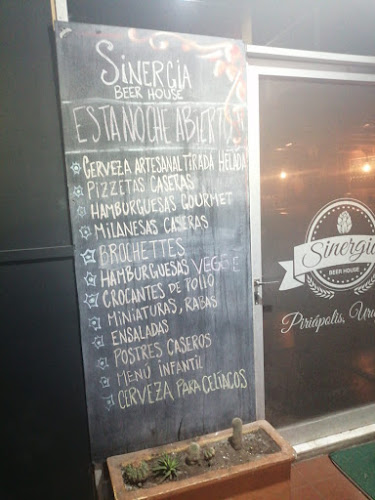 Sinergia
BEER HOUSE
ESTA NOCHE ABIERTO
CERVEZA ARTESANAL TIRADA HELADA
PIZZETAS CASERAS
HAMBURGUESAS GOURMET
MILANESAS CASERAS
BROCHETTES
HAMBURGUESAS VEGGIE
CROCANTES DE POLLO
MINIATURAS, RABAS
ENSALADAS
POSTRES CASEROS
MENÚ INFANTIL
CERVEZA PARA CELÍACOS
Sinergia
BEER HOUSE
Piriápolis, Uru